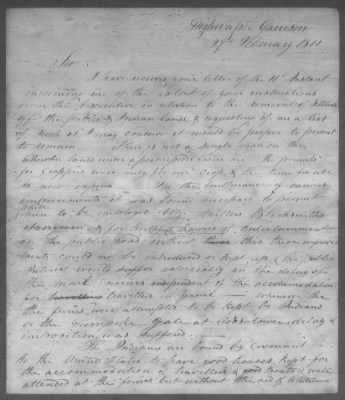 Highwassee Garrison
17th February 1811
Sir
I have received your letter of the 11th Instant
informing me of the extent of your instructions
from the Executive in relation to the removal of settlers
off the public & Indian lands, & requesting of me a list
of such as I may conceive it would be proper to permit
to remain There is not a single man on the
Cherokee lands under a permission from me the permits
for croppers were only for one crop, & the time for all
is now expired. For the furtherance of various
improvements it was found necessary to permit
men to be employed Viz. Millers Blacksmiths
& for Houses of Entertainment
on the public road without these improve
ments could not be introduced or kept up & the public
Interest would suffer extremely in the delay of
the mail carriers independent of the accommodation
for travellers in general whenever the
the ferries were attempted to be kept by Indians
or the Turnpike Gate at delay &
imposition was suffered.
The Indians are bound by Covenant
to the United States to have good houses kept for
the accommodation of travellers & good boats & well
attended at the ferries but without the aid of Whitemen